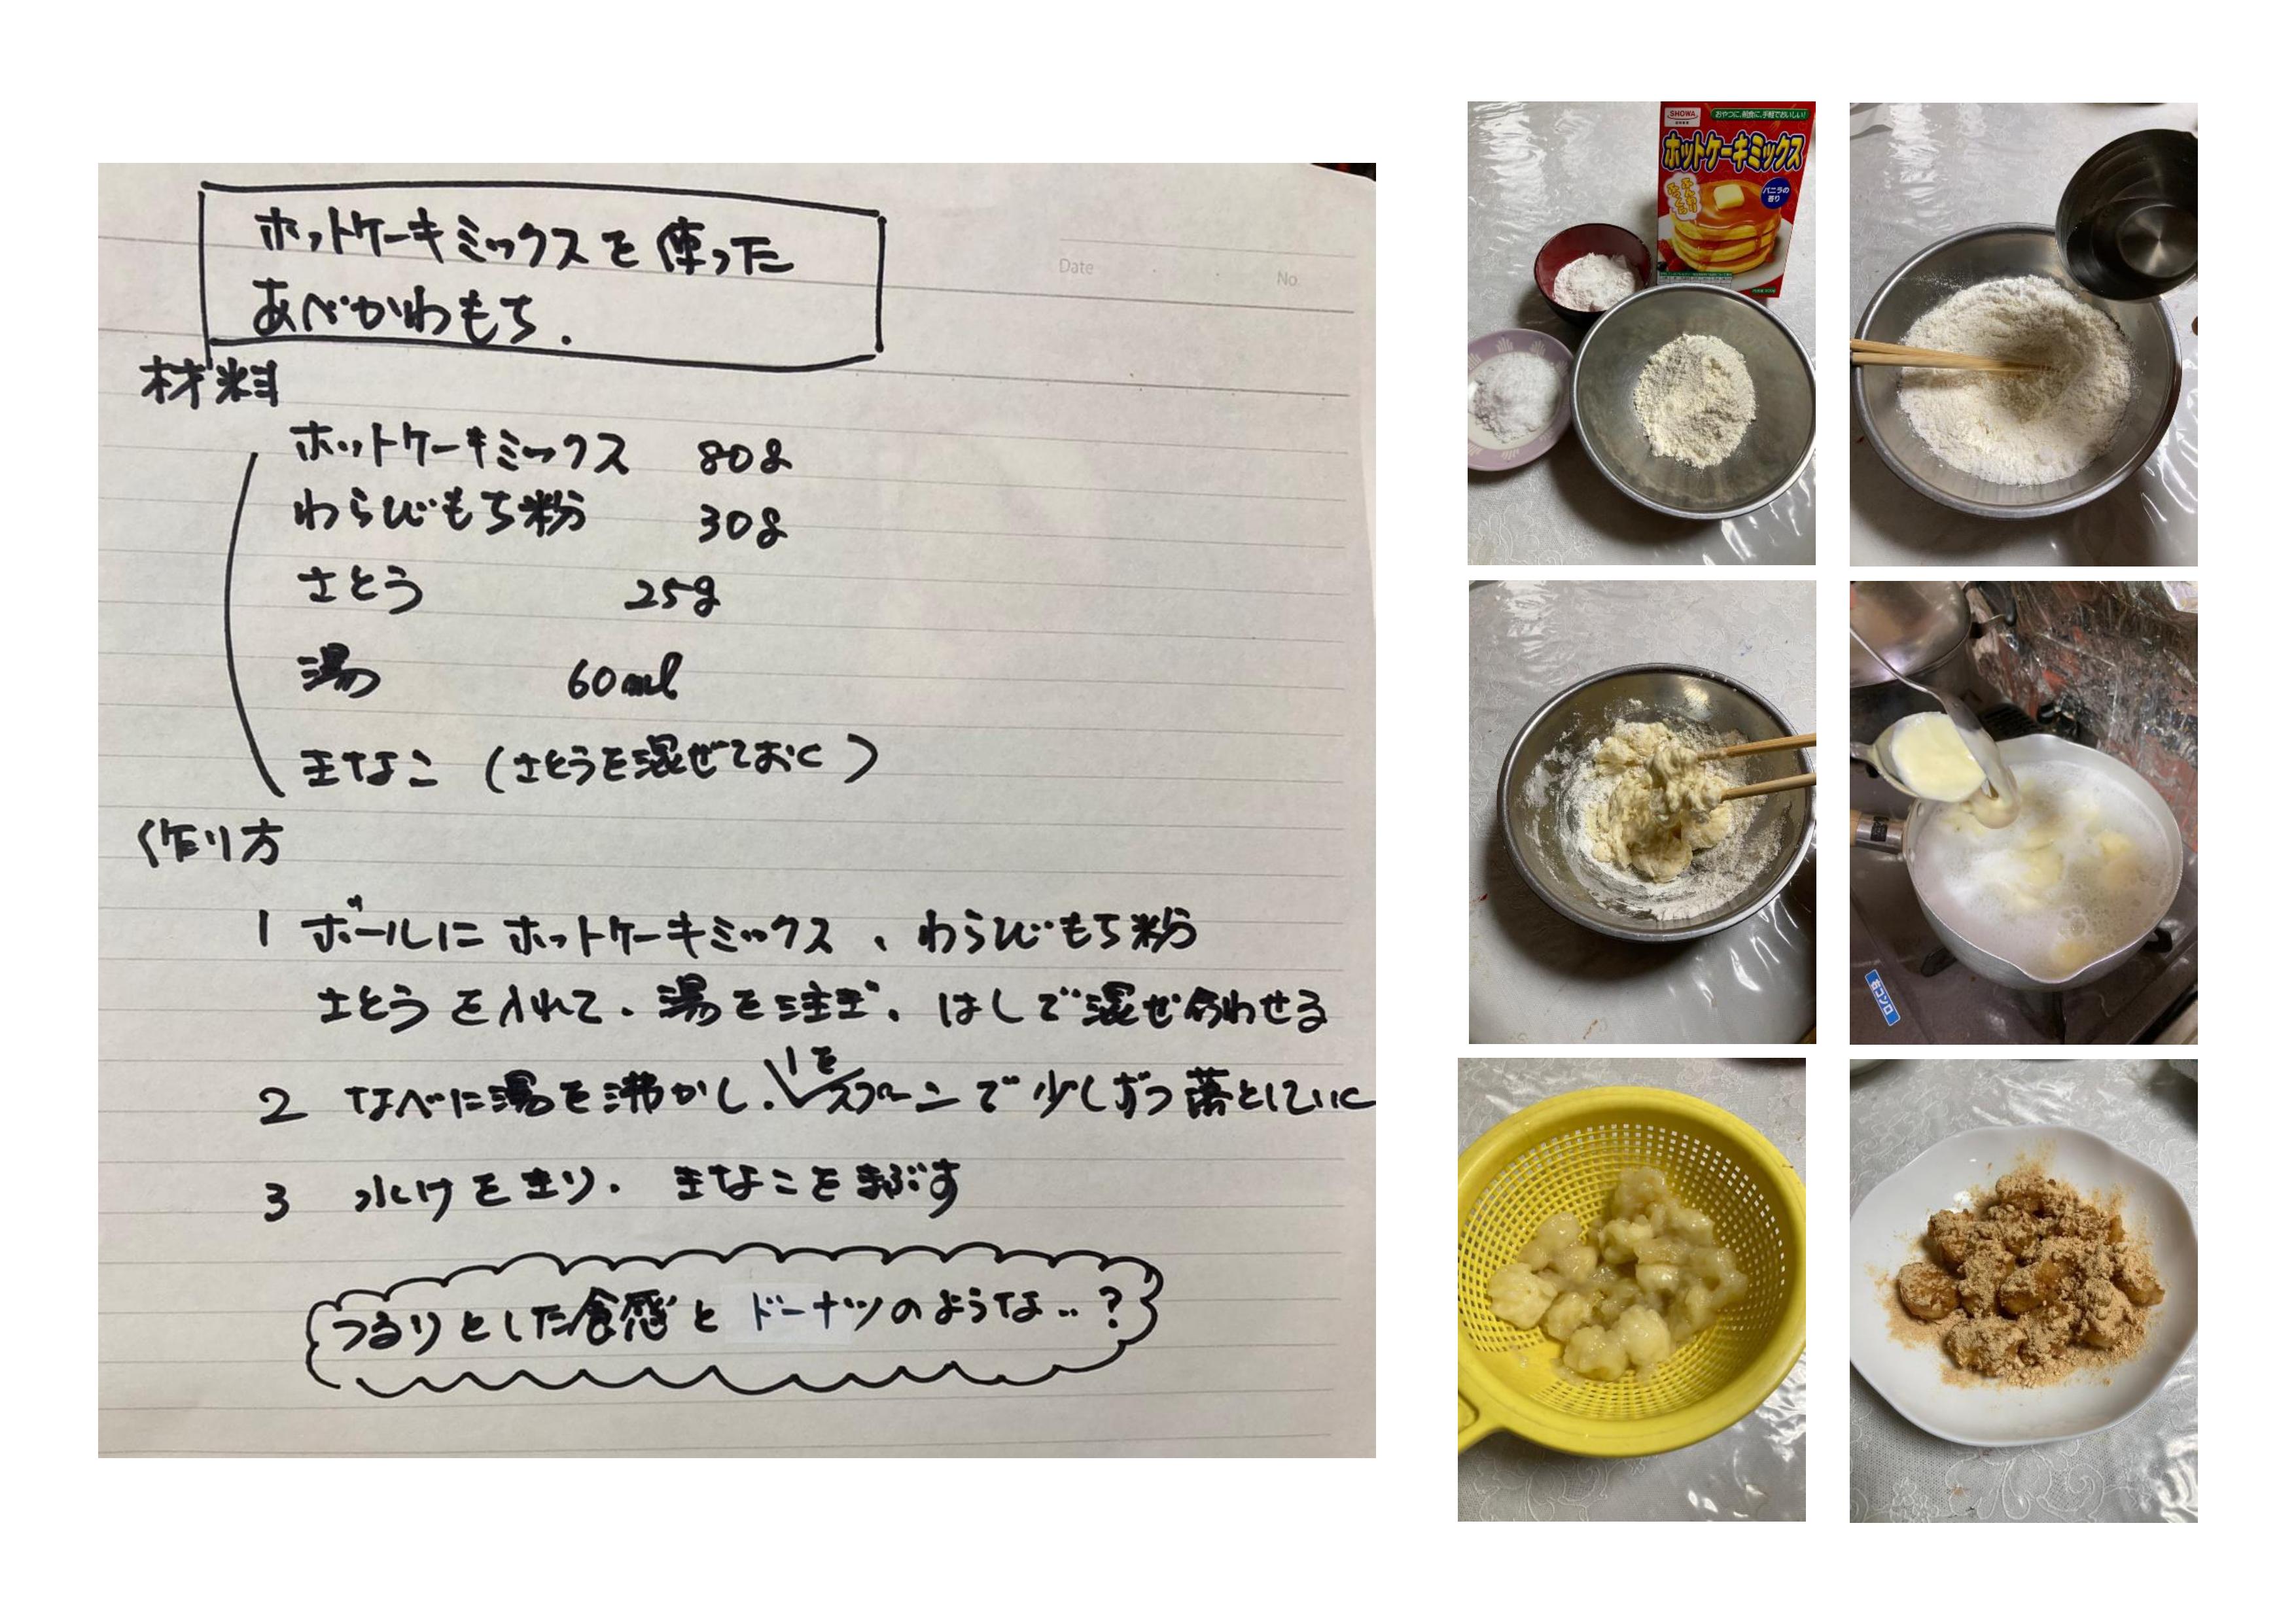 ホットケーキミックスを使った
あべかわもち.
Date
No.
材料
ホットケーキミックス 80g
わらびもち粉 30g
さとう 25g
湯 60ml
きなこ (さとうを混ぜておく)
作り方
1 ボールにホットケーキミックス、わらびもち粉
さとうを入れて、湯を注ぎ、はしで混ぜ合わせる
2 なべに湯を沸かし、1をスプーンで少しずつ落としていく
3 水けをきり、きなこをまぶす
つるりとした食感とドーナツのような‥?
SHOWA
おやつに、朝食に、手軽でおいしい!
ホットケーキミックス
バニラの
香り
ガスコンロ